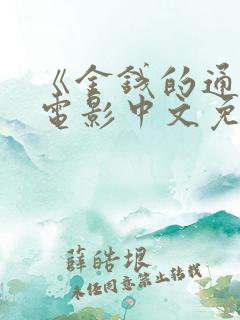 《金钱的通
电影中文免
薛皓垠
未经同意禁止转载